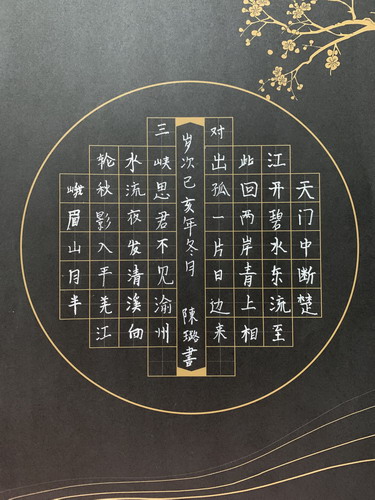 天门中断楚
江开碧水东流至
此回两岸青上相
对出孤一片日边来
岁次己亥年冬月 陳璐書
三峡思君不见渝州
水流夜发清溪向
轮秋影入平羌江
峨眉山月半